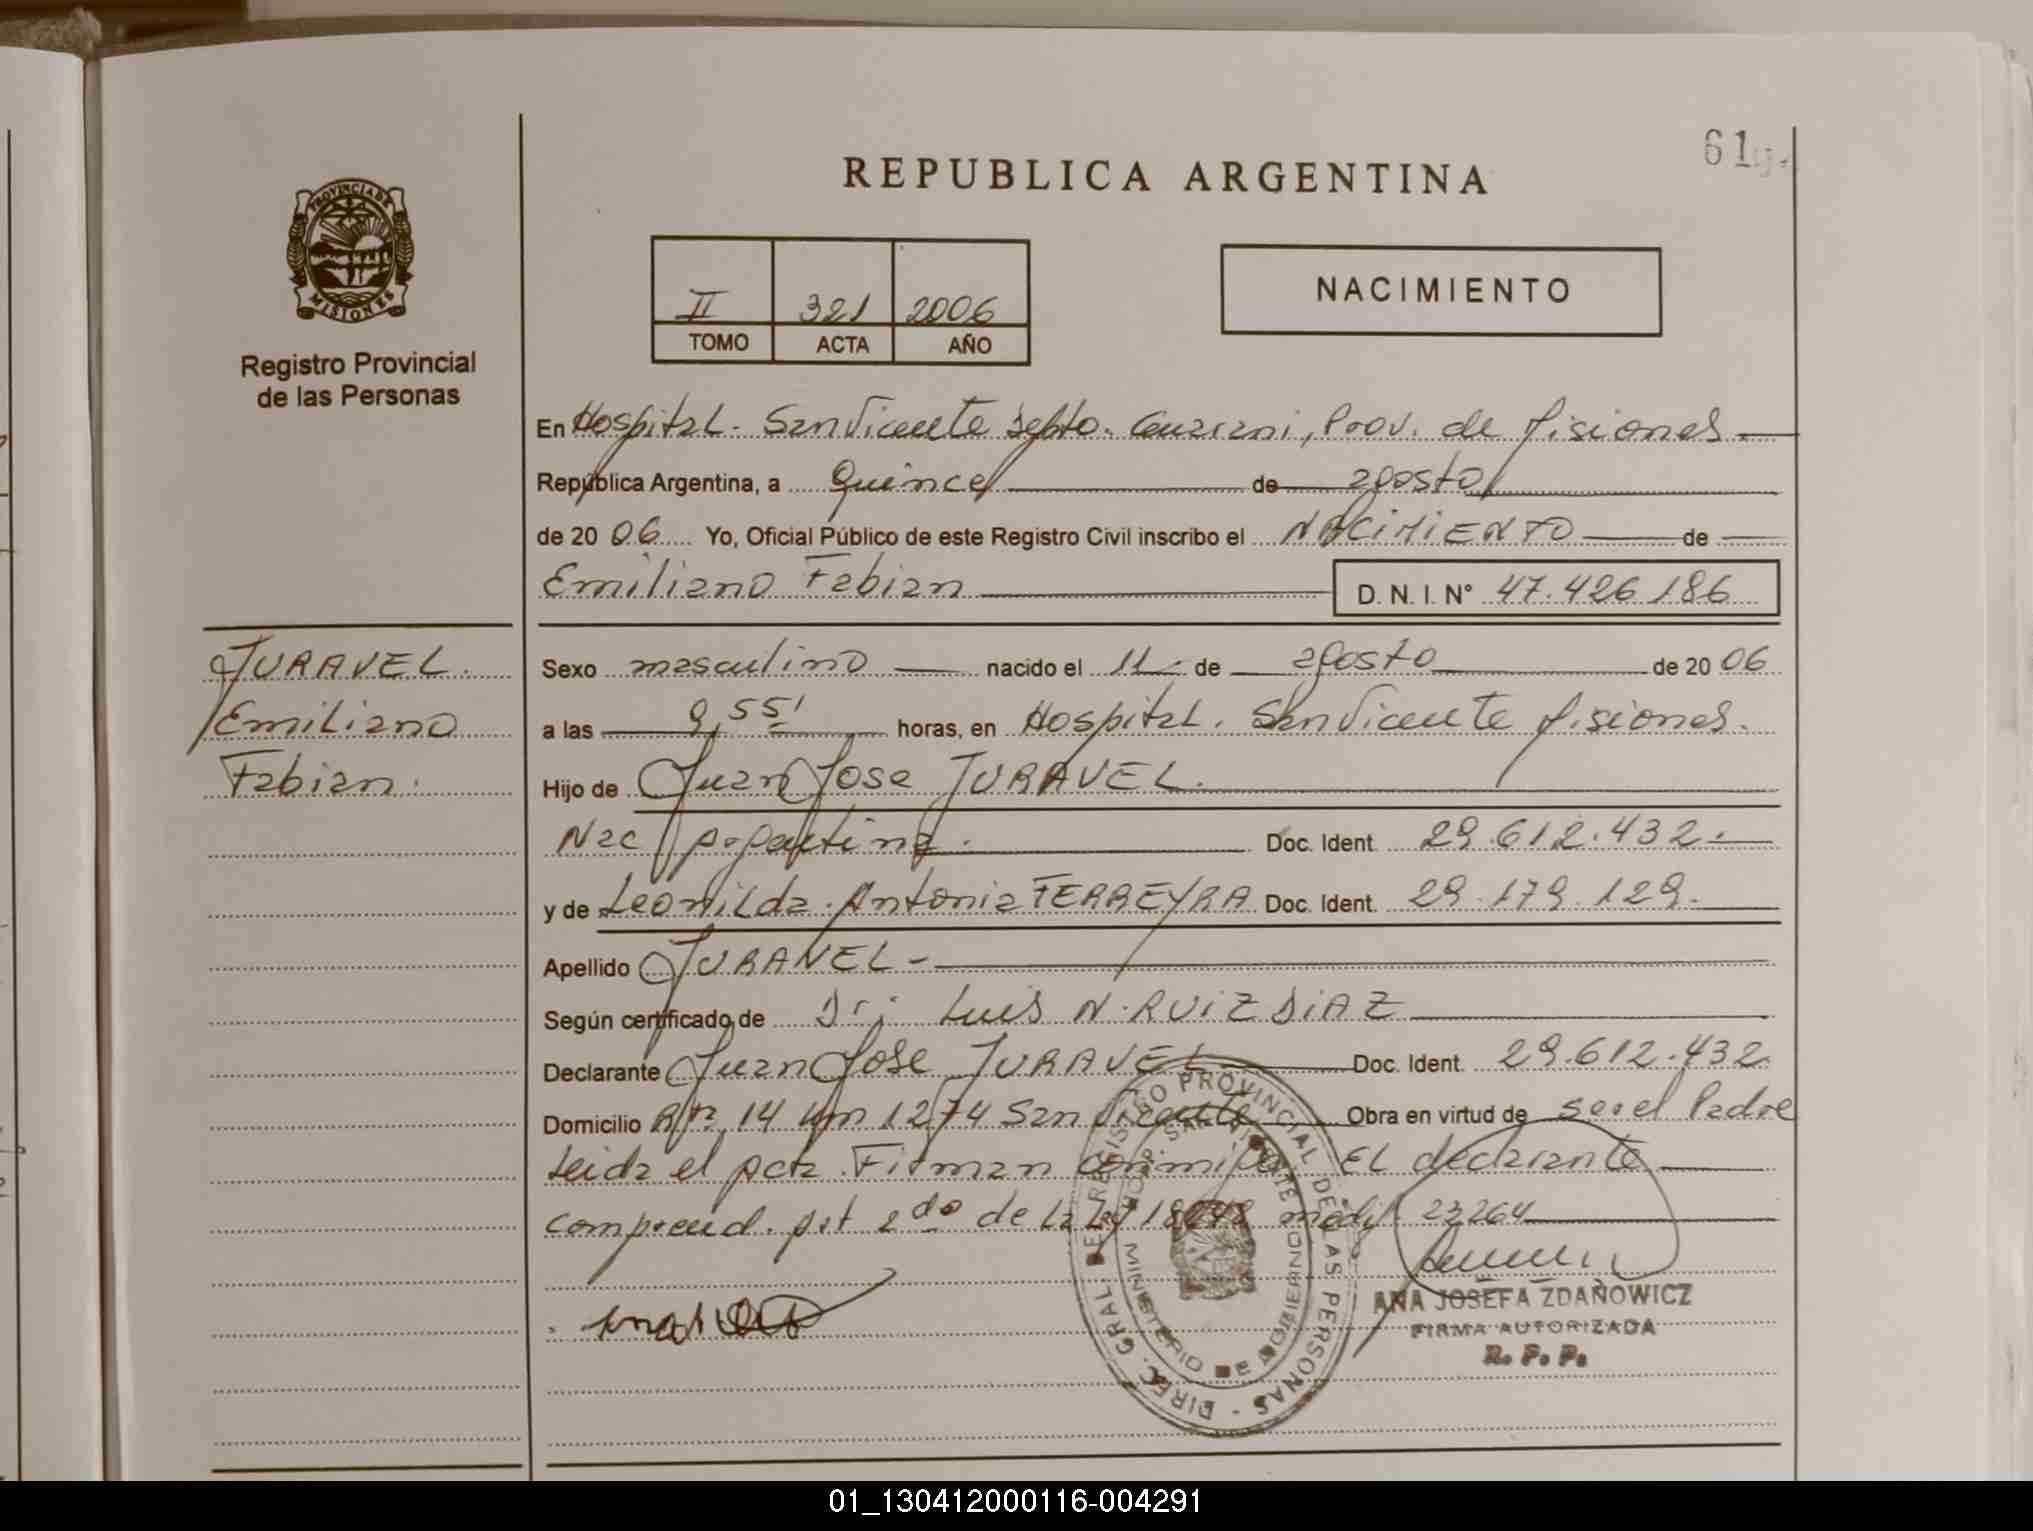 61
REPUBLICA ARGENTINA
PROVINCIA DE
MISIONES
Registro Provincial
de las Personas
II 321 2006
TOMO ACTA AÑO
NACIMIENTO
En Hospital. San Vicente Depto. Guarani, Prov. de Misiones
República Argentina, a Quince de agosto
de 20 06 Yo, Oficial Público de este Registro Civil inscribo el NACIMIENTO de
Emiliano Fabian D.N.I. N° 47.426.186
JURAVEL.
Emiliano
Fabian.
Sexo masculino nacido el 11 de agosto de 20 06
a las 9,55' horas, en Hospital. San Vicente Misiones.
Hijo de Juan Jose JURAVEL.
Nac Argentina. Doc. Ident. 29.612.432.
y de Leonilda. Antonia FERREYRA Doc. Ident. 29.179.129.
Apellido JURAVEL-
Según certificado de Dr: Luis N. RUIZ DIAZ
Declarante Juan Jose JURAVEL Doc. Ident. 29.612.432
Domicilio 14 km 1274 San Vicente Obra en virtud de ser el Padre
Leida el acta. Firman conmigo EL declarante
comprend. art 2do de la Ley 18248 modif 23264
DIREC. GRAL. DE REGISTRO PROVINCIAL DE LAS PERSONAS -
HOSP. SAN VICENTE
MINISTERIO DE GOBIERNO
ANA JOSEFA ZDANOWICZ
FIRMA AUTORIZADA
R. P. P.
01_130412000116-004291